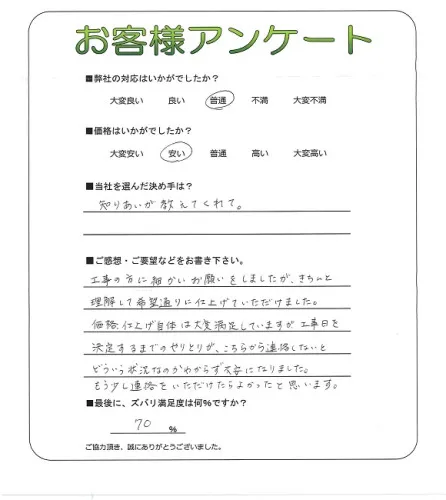 お客様アンケート
■弊社の対応はいかがでしたか?
大変良い 良い 普通 不満 大変不満
■価格はいかがでしたか?
大変安い 安い 普通 高い 大変高い
■当社を選んだ決め手は?
知りあいが教えてくれて。
■ご感想・ご要望などをお書き下さい。
工事の方に細かいお願いをしましたが、きちんと
理解して希望通りに仕上げていただけました。
価格、仕上げ自体は大変満足していますが工事日を
決定するまでのやりとりが、こちらから連絡しないと
どういう状況なのかわからず不安になりました。
もう少し連絡をいただけたらよかったと思います。
■最後に、ズバリ満足度は何%ですか?
70 %
ご協力頂き、誠にありがとうございました。